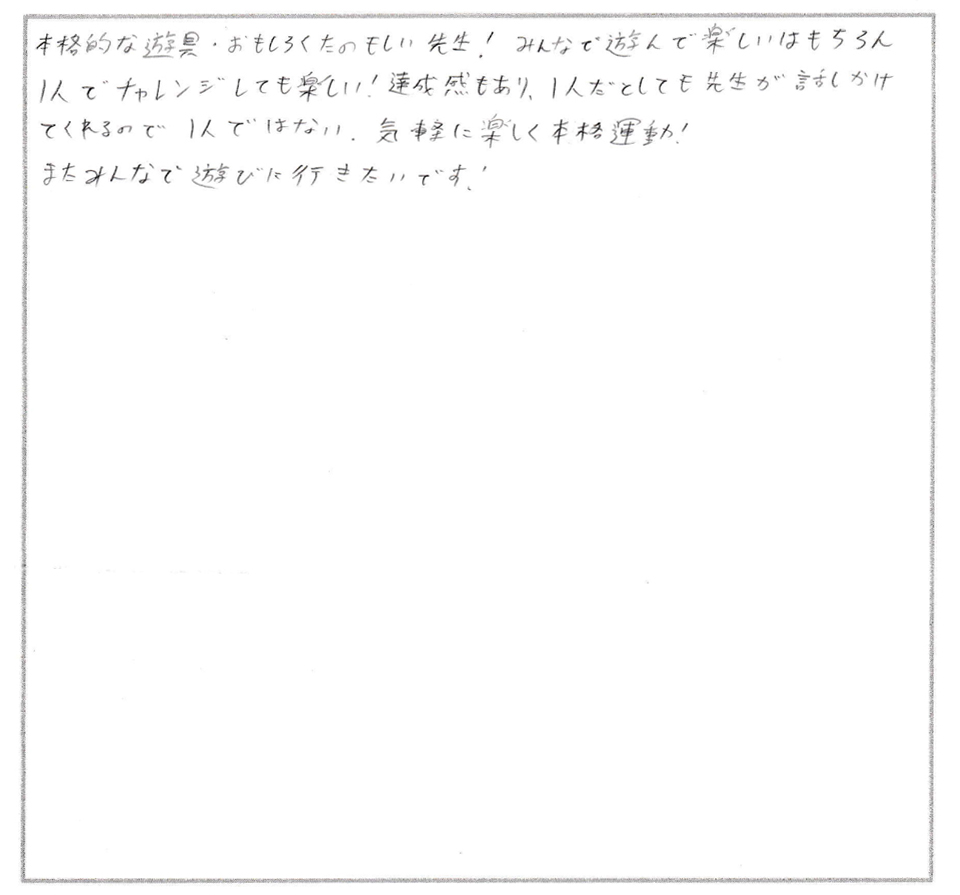 本格的な遊具・おもしろくたのもしい先生! みんなで遊んで楽しいはもちろん
1人でチャレンジしても楽しい!達成感もあり、1人だとしても先生が話しかけ
てくれるので1人ではない。気軽に楽しく本格運動!
またみんなで遊びに行きたいです!